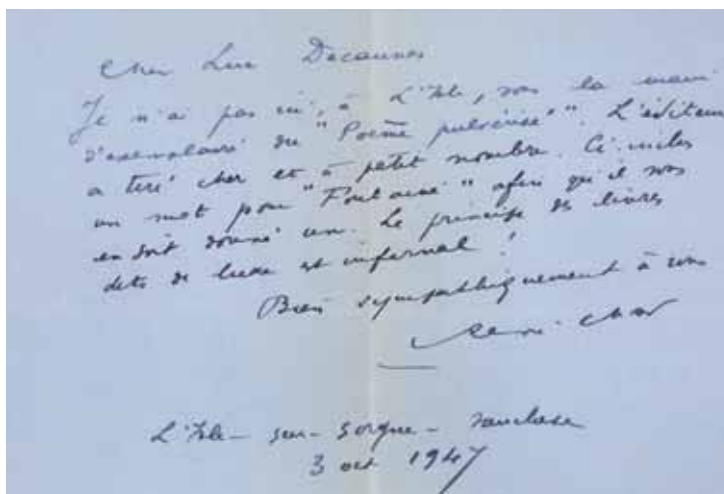 Cher Luc Decaunes
Je n'ai pas ici, à L'Isle, sous la main
d'exemplaire du "Poème pulvérisé". L'éditeur
a tiré cher et à petit nombre. Ci-inclus
un mot pour "Fontaine" afin qu'il vous
en soit donné un. Le principe des livres
dits de luxe est infernal !
Bien sympathiquement à vous
René Char
L'Isle-sur-Sorgue-Vaucluse
3 oct 1947